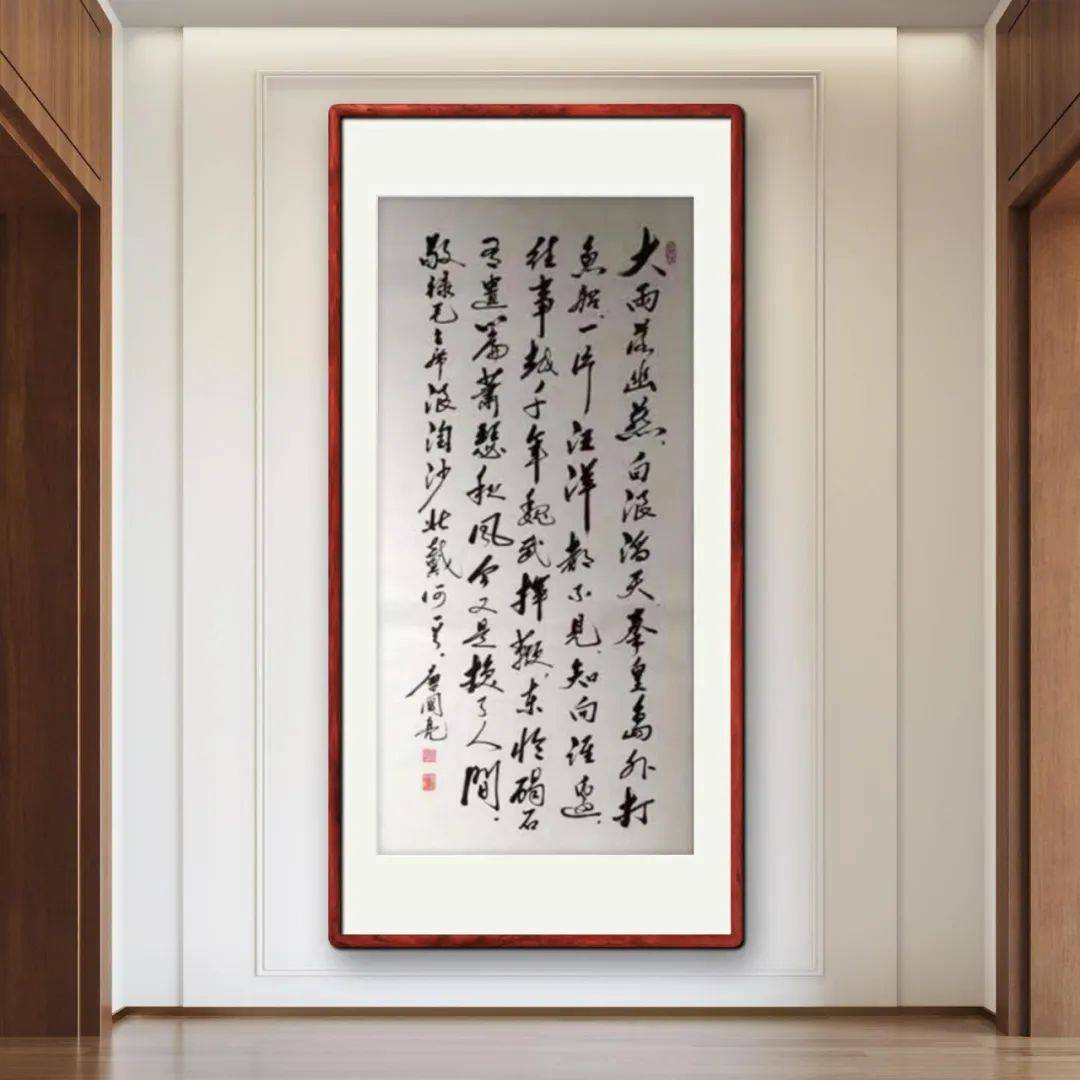 大雨落幽燕，白浪滔天，秦皇島外打
魚船，一片汪洋都不見，知向誰邊，
往事越千年，魏武揮鞭，东临碣石
有遺篇，蕭瑟秋風今又是，換了人間。
敬録毛主席浪淘沙北戴河一首，唐國亮